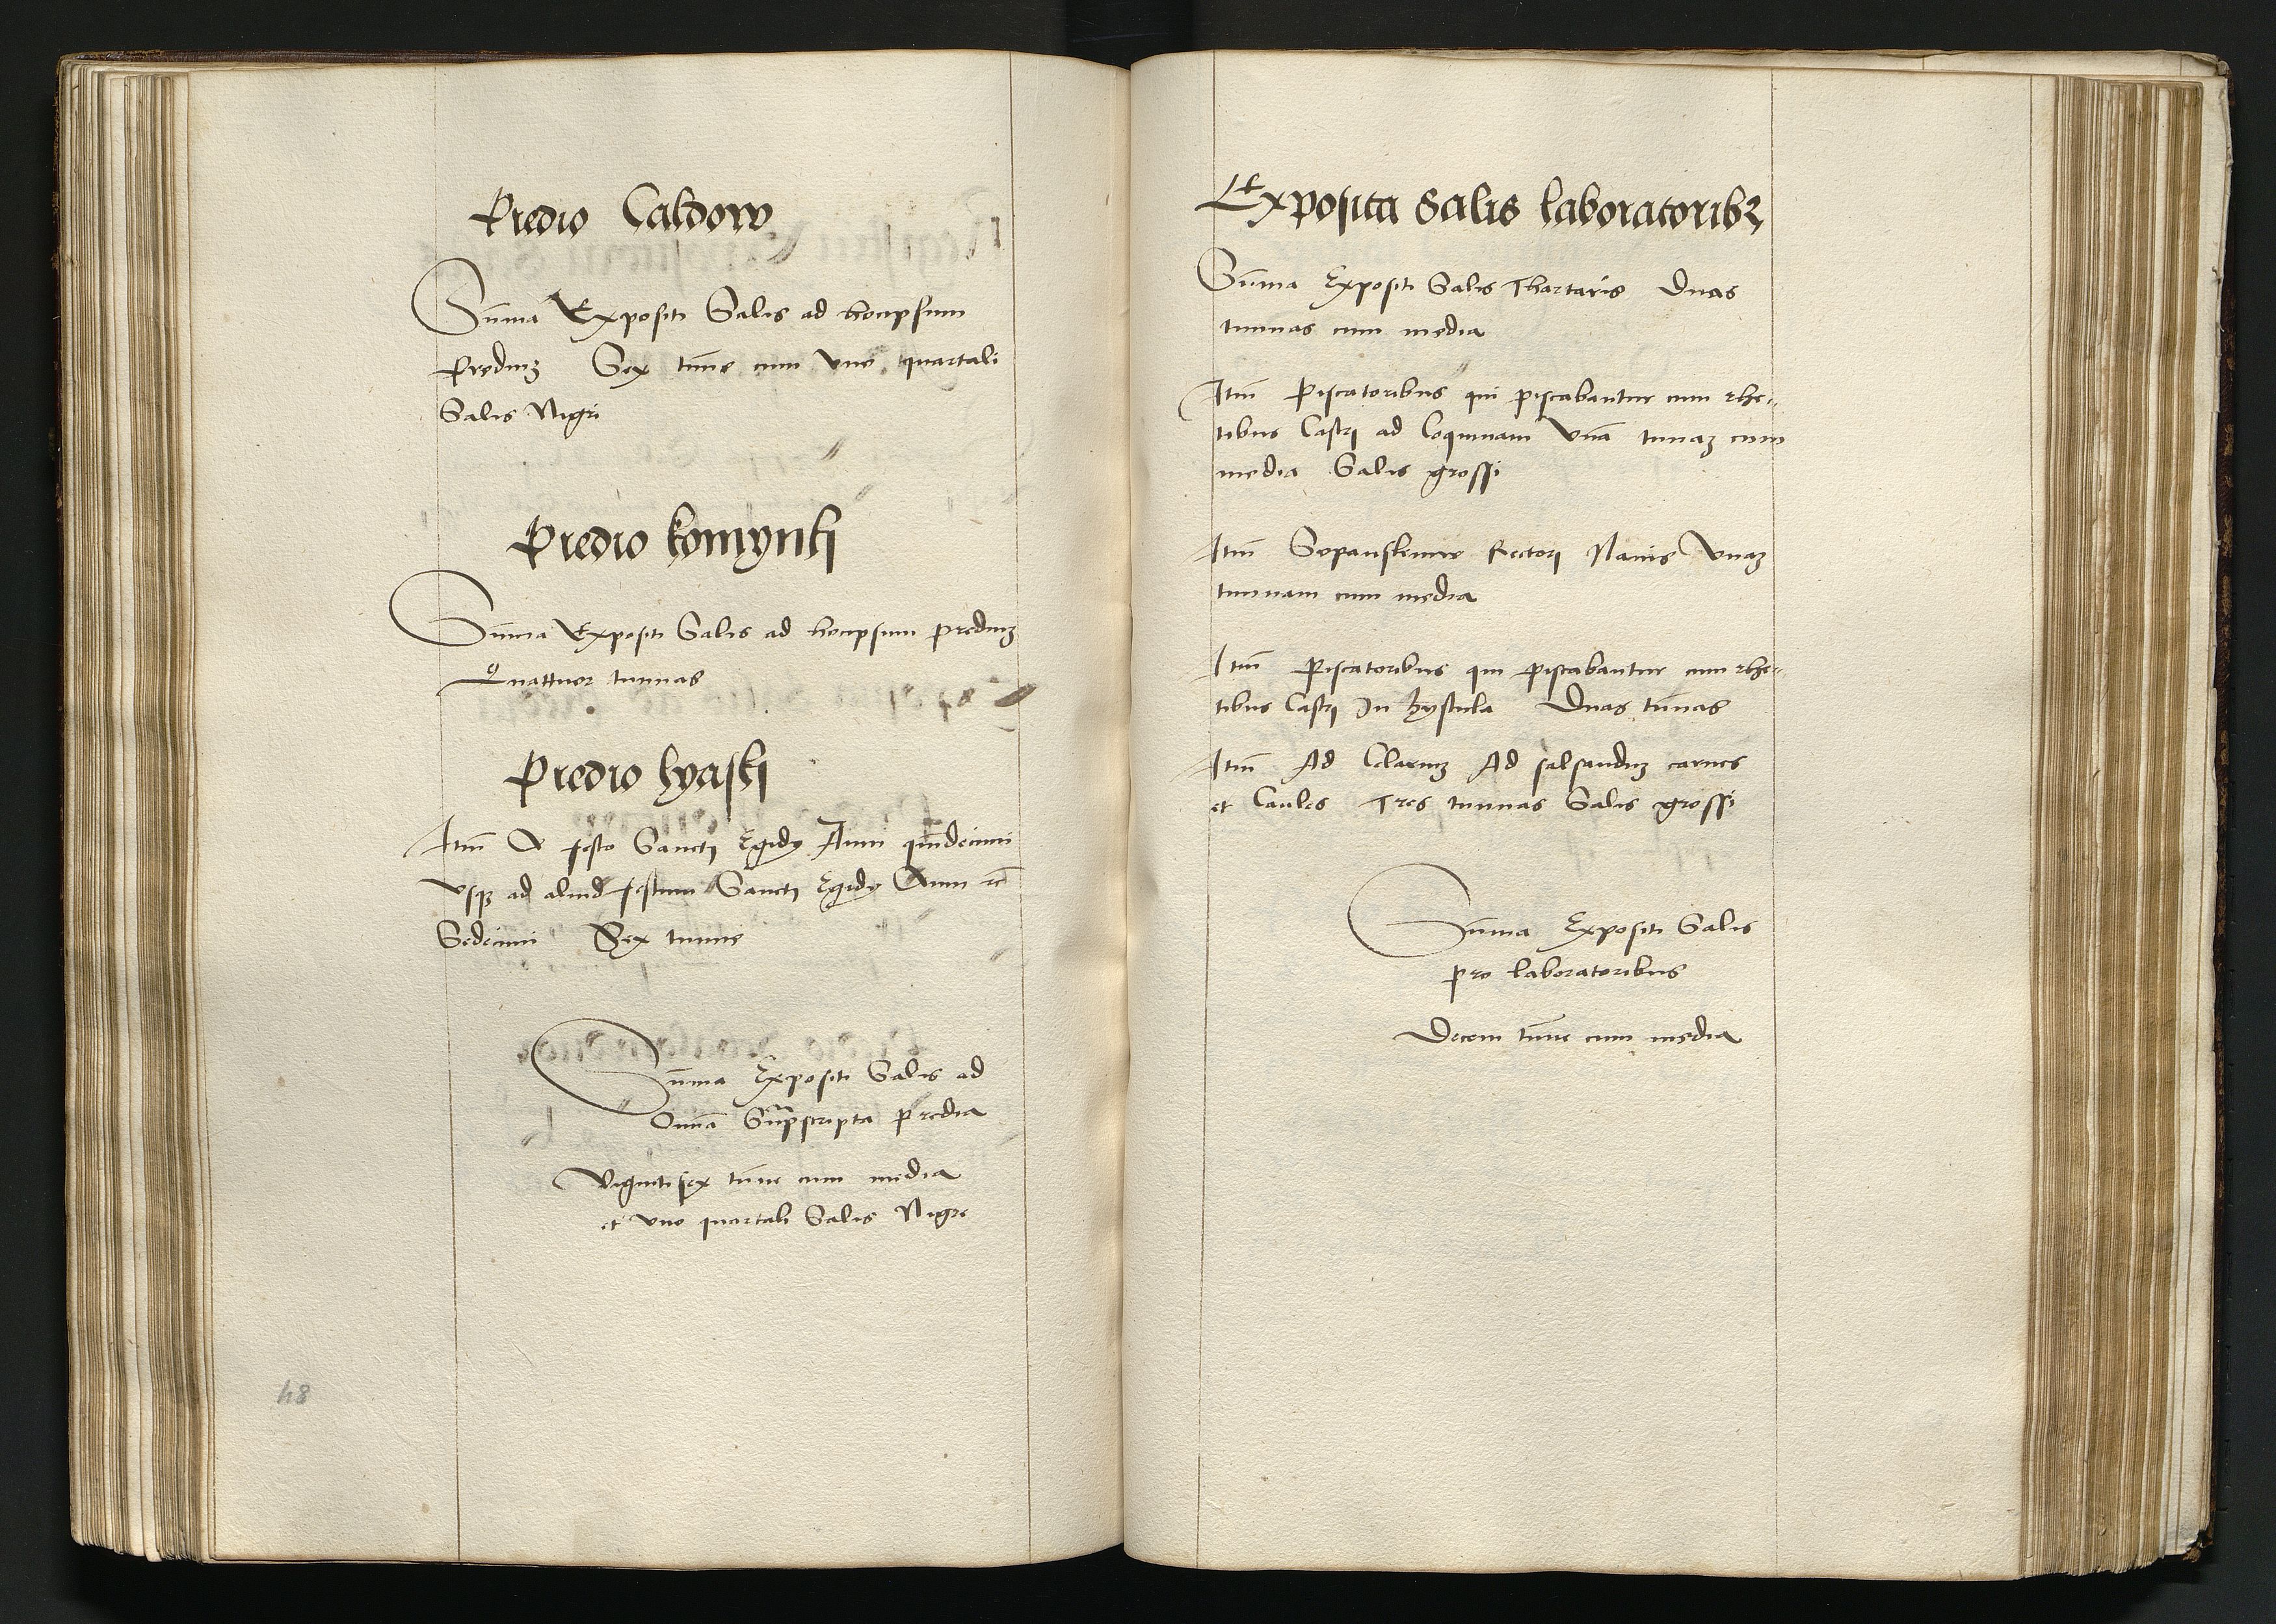 Predio Caldow
Su̅ma Expositi Salis ad hocipsum
Prediuʒ Sex tu̅ne cum vno quartali
Salis Nigri
Predio komynki
Su̅ma Expositi Salis ad hocipsum prediuʒ
Quattuor tunnas
Predio lyaski
Itm̅ A festo Sanctj Egidy Anni qui̅decimi
vsqʒ ad aliud festum Sanctj Egidy Anni
Sedecimi Sex tunne
Su̅ma Expositi Salis ad
Omi̅a Suprascripta predia
Vigintisex tu̅ne cum media
et vno quartali Salis Nigre
48
Exposita Salis laboratoribʒ
Su̅ma Expositi Salis Thartaris Duas
tunnas cum media
Itm̅ Piscatoribus qui piscabantur cum rhe-
tibus Castrj ad Coquinam Vna̅ tunaʒ cum
media Salis grossi
Itm̅ Rectorj Nauis Vnaʒ
tunnam cum media
Itm̅ Piscatoribus qui piscabantur cum rhe-
tibus Castrj In hystula Duas tu̅nas
Itm̅ Ad Celariuʒ Ad salsanduʒ carnes
et Caules Tres tunnas Salis grossi
Su̅ma Expositi Salis
pro laboratoribus
Decem tu̅ne cum media